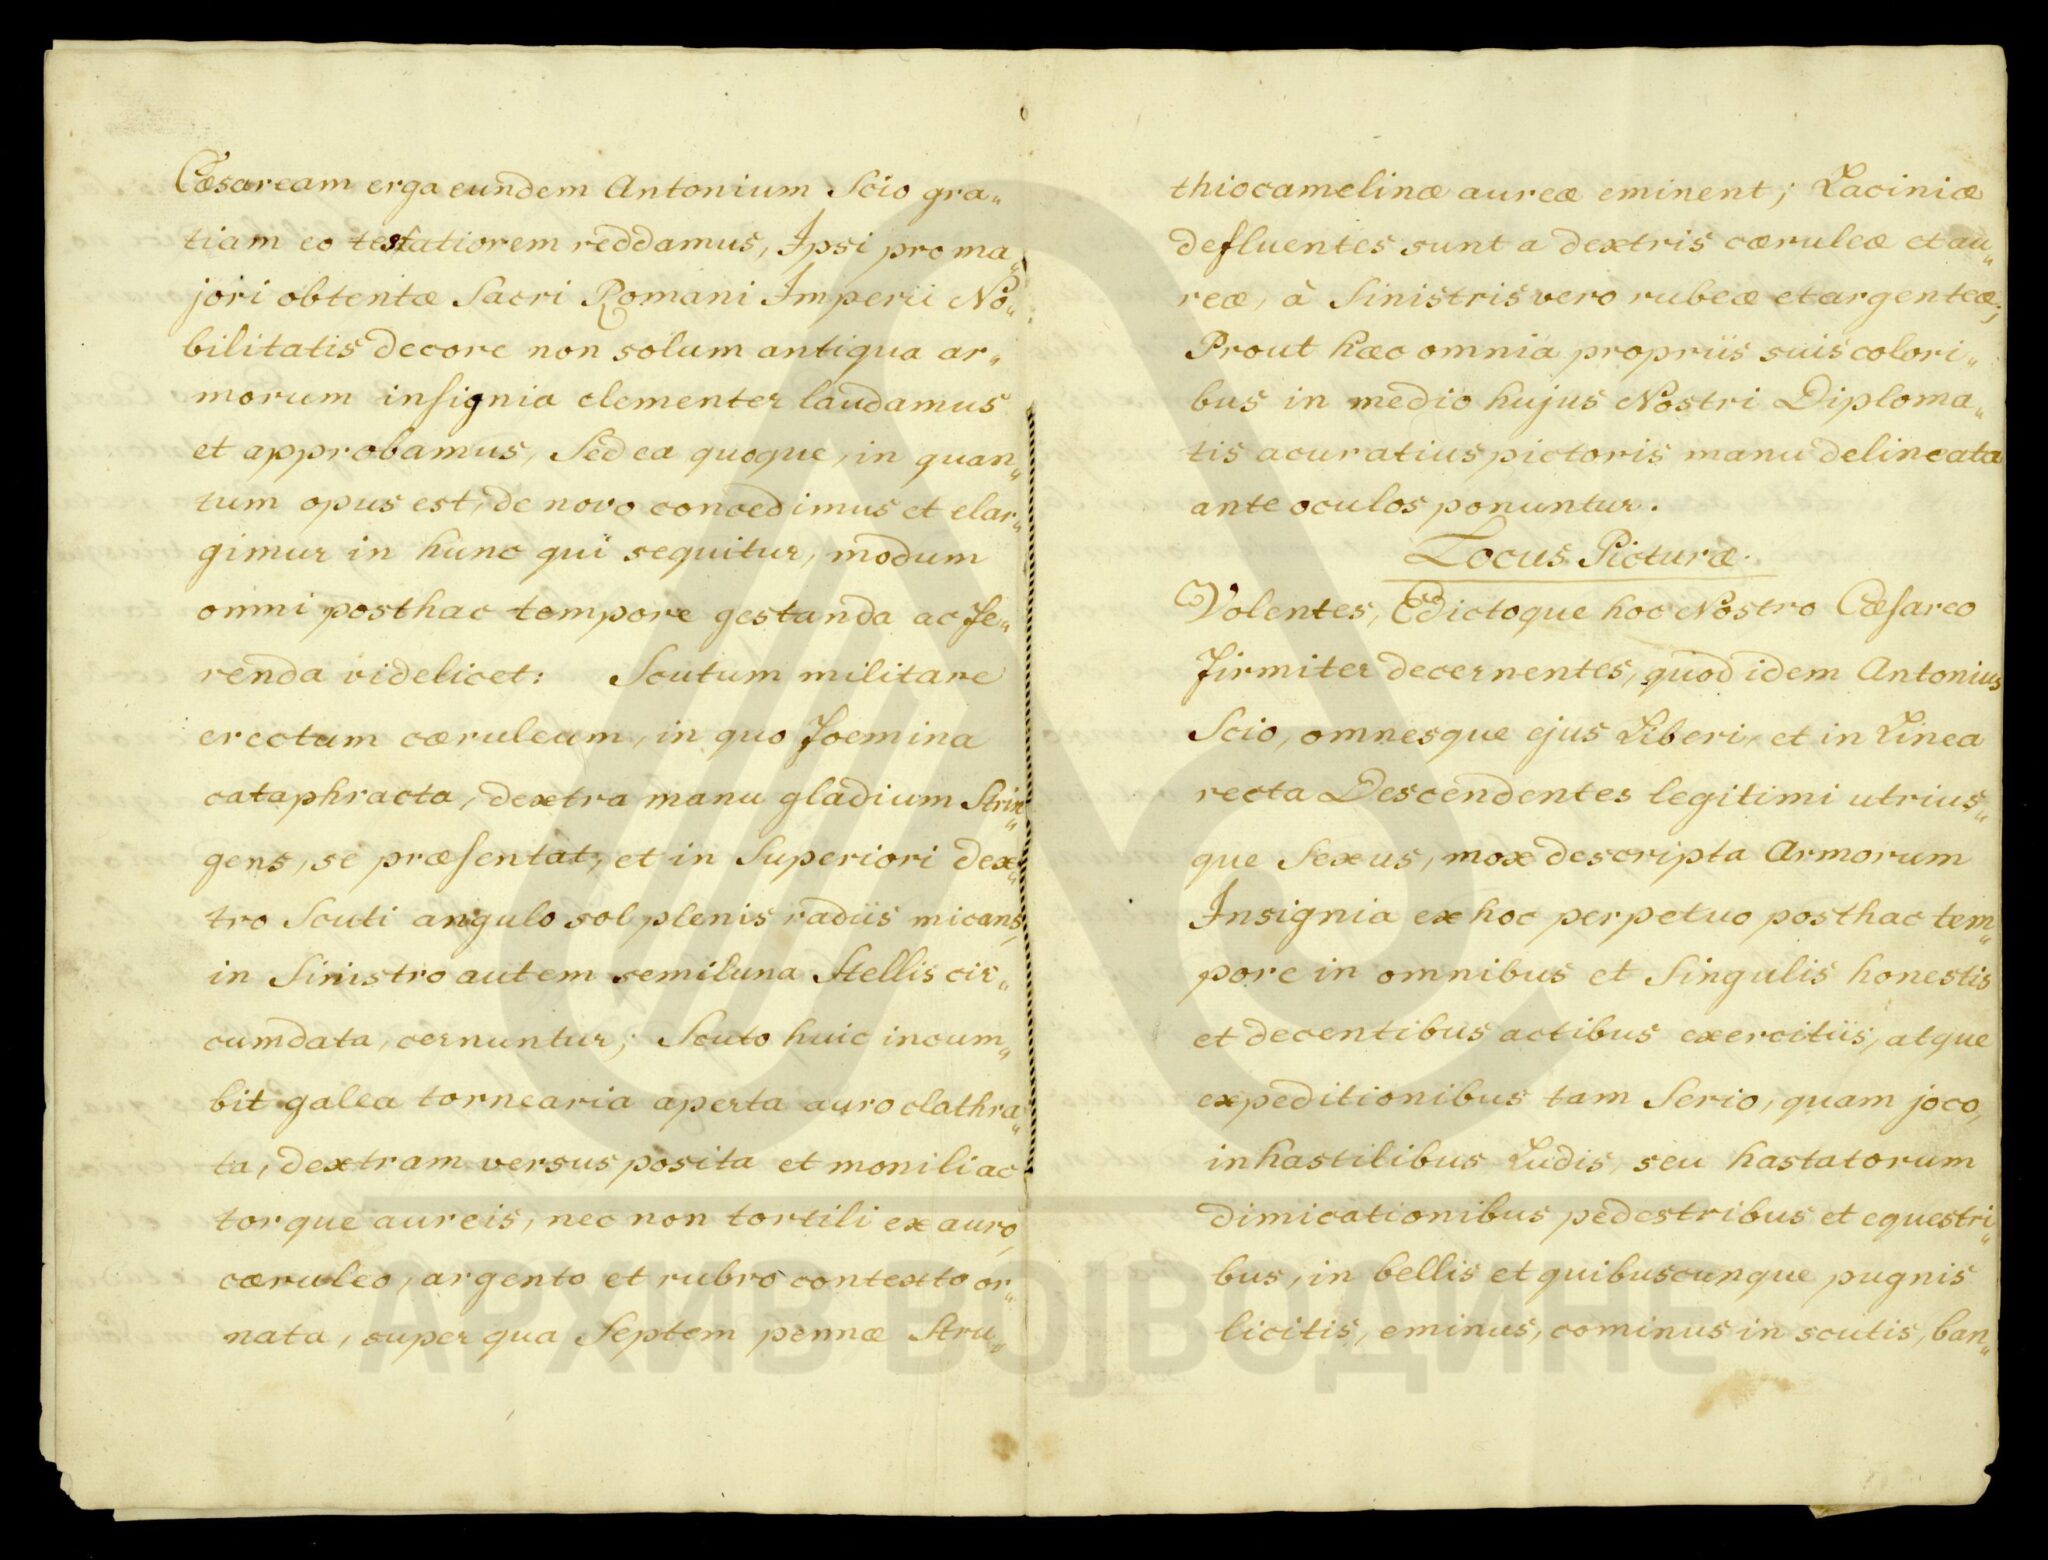 Cæsaream erga eundem Antonium Scio gra„
tiam eo testatiorem reddamus, Ipsi pro ma„
jori obtentæ Sacri Romani Imperii No„
bilitatis decore non solum antiqua ar„
morum insignia clementer laudamus
et approbamus, Sed ea quoque, in quan„
tum opus est, de novo concedimus et elar„
gimur in hunc qui sequitur, modum
omni posthac tempore gestanda ac fe„
renda videlicet: Scutum militare
erectum cæruleum, in quo foemina
cataphracta, dextra manu gladium Strin„
gens, se præsentat, et in Superiori dex„
tro Scuti angulo sol plenis radiis micans,
in Sinistro autem semiluna Stellis cir„
cumdata, cernuntur; Scuto huic incum„
bit galea tornearia aperta auro clathra„
ta, dextram versus posita et monili ac
torque aureis, nec non tortili ex auro,
cæruleo, argento et rubro contexto or„
nata, super qua Septem pennæ Stru„
thiocamelinæ aureæ eminent; Laciniæ
defluentes sunt a dextris cæruleæ et au„
reæ, à Sinistris vero rubeæ et argenteæ;
Prout hæc omnia propriis suis colori„
bus in medio hujus Nostri Diploma„
tis acuratius pictoris manu delineata
ante oculos ponuntur.
Locus Picturæ.
Volentes, Edictoque hoc Nostro Cæsareo
firmiter decernentes, quod idem Antonius
Scio, omnesque ejus Liberi, et in Linea
recta Descendentes legitimi utrius„
que Sexus, mox descripta Armorum
Insignia ex hoc perpetuo posthac tem„
pore in omnibus et Singulis honestis
et decentibus actibus exercitiis, atque
expeditionibus tam Serio, quam joco,
in hastilibus Ludis, seu hastatorum
dimicationibus pedestribus et equestri„
bus, in bellis et quibuscunque pugnis
licitis, eminus, cominus in scutis, ban„
АРХИВ ВОЈВОДИНЕ